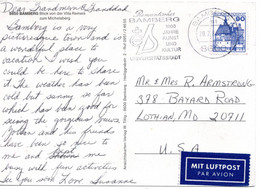 Dear Grandmom & Granddad
8600 BAMBERG Blick von der Villa Remeis
zum Michelsberg
Bamberg is a very
picturesque town and is
a wonderful place to
vacation. I wish you
could be here to share
it. The weather has been
cold but sunny so far
which has been good for
seeing the gorgeous
Mother and his friend
have been so nice to
me and
easy with fun activities.
See you soon Love Susanne
BAMBERG
1000
JAHRE
KUNST
UND
KULTUR
90
MR & MRS R. ARMSTRONG
378 BAYARD ROAD
LOTHIAN, MD 20711
U.S.A
MIT LUFTPOST
PAR AVION